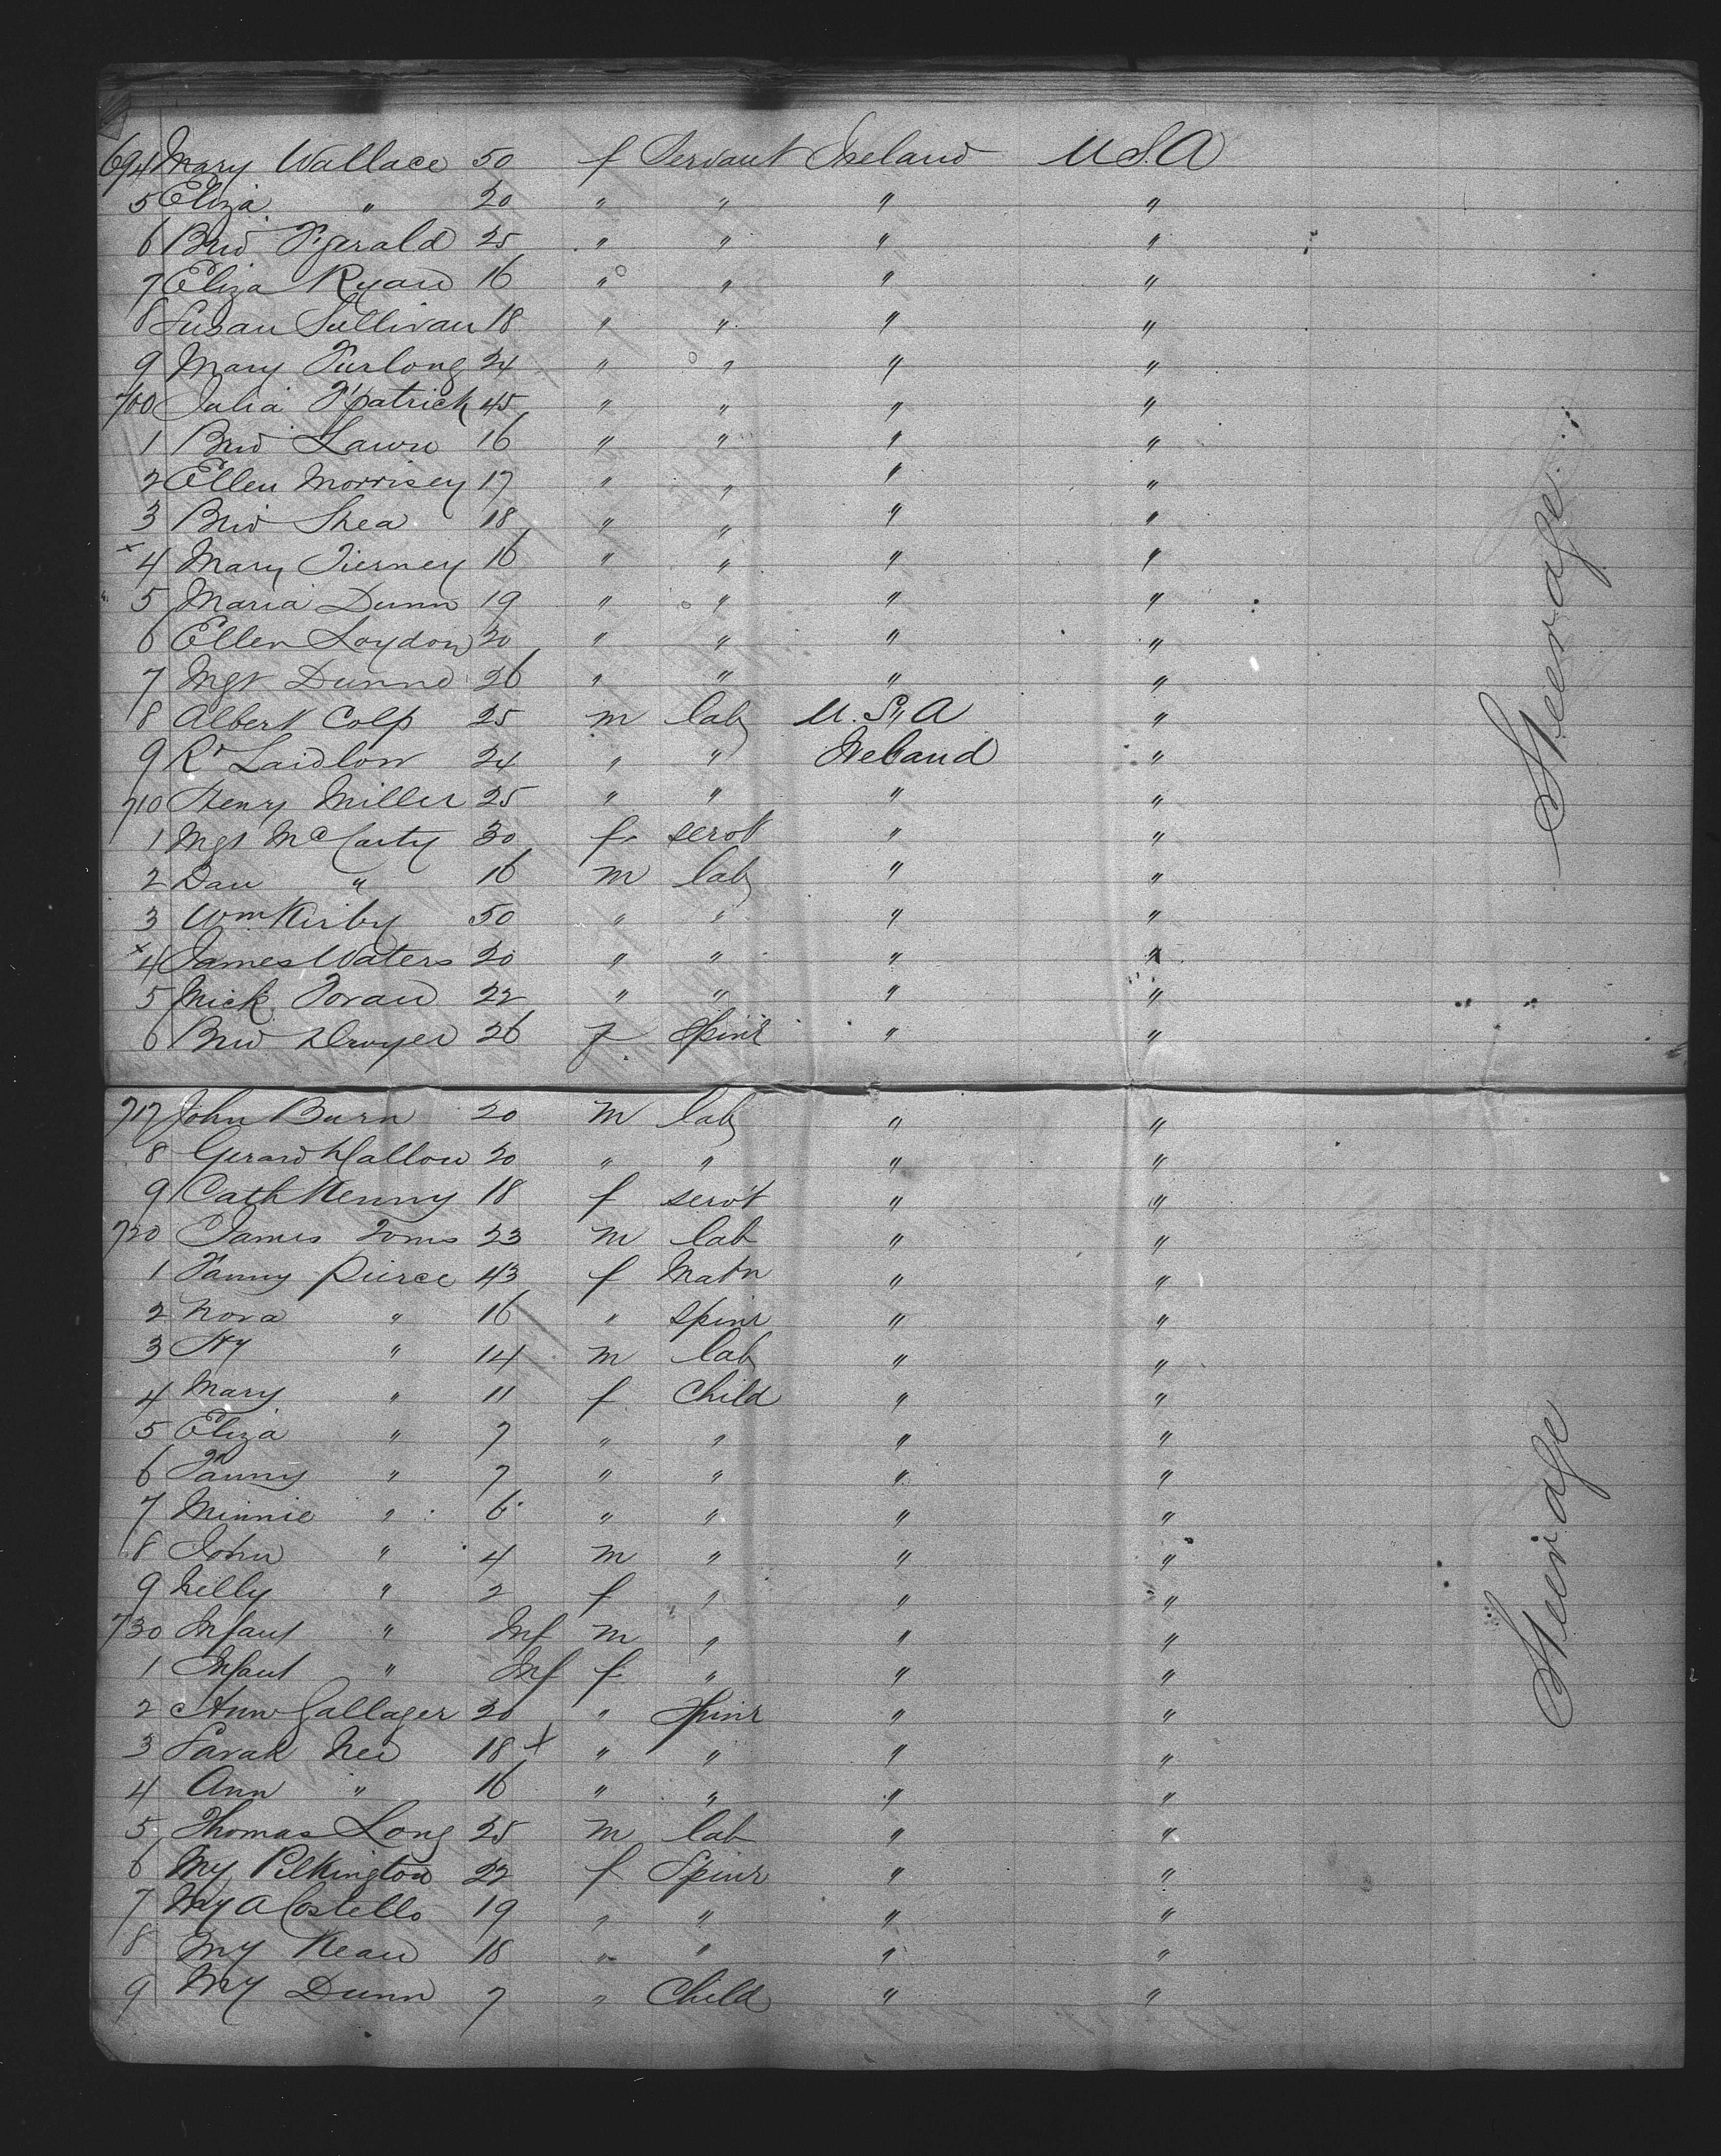 694 Mary Wallace 50 f Servant Ireland U.S.A
5 Eliza " 20 " " " "
6 Brid F'gerald 25 " " " "
7 Eliza Ryan 16 " " " "
8 Susan Sullivan 18 " " " "
9 Mary Furlong 24 " " " "
700 Julia F'patrick 45 " " " "
1 Brid 16 " " " "
2 Ellen Morrisey 17 " " " "
3 Brid Shea 18 " " " "
x 4 Mary Tierney 16 " " " "
5 Maria Dunn 19 " " " "
6 Ellen Loydon 20 " " " "
7 Mgt Dunne 26 " " " "
8 Albert Colp 25 m lab U.S.A "
9 Rd Laidlow 24 " " Ireland "
710 Henry Miller 25 " " " "
1 Mgt McCarty 30 f servt " "
2 Dan " 16 m lab " "
3 Wm Kirby 50 " " " "
x 4 James Waters 20 " " " "
5 Mick 22 " " " "
6 Brid Dwyer 26 f Spinr " "
717 John Burn 20 m lab " "
8 Gerard 20 " " " "
9 Cath Kenny 18 f servt " "
720 James 23 m lab " "
1 Fanny Pierce 43 f Matn " "
2 Nora " 16 " spinr " "
3 Hy " 14 m lab " "
4 Mary " 11 f Child " "
5 Eliza " 7 " " " "
6 Fanny " 7 " " " "
7 Minnie " 6 " " " "
8 John " 4 m " " "
9 Nelly " 2 f " " "
730 Infant " Inf m " " "
1 Infant " Inf f " " "
2 Ann Gallager 20 " Spinr " "
3 Sarah Nee 18 x " " " "
4 Ann " 16 " " " "
5 Thomas Long 25 m lab " "
6 My Pilkington 22 f Spinr " "
7 My A Costello 19 " " " "
8 My Kean 18 " " " "
9 My Dunn 7 " Child " "
Steerage
Steerage